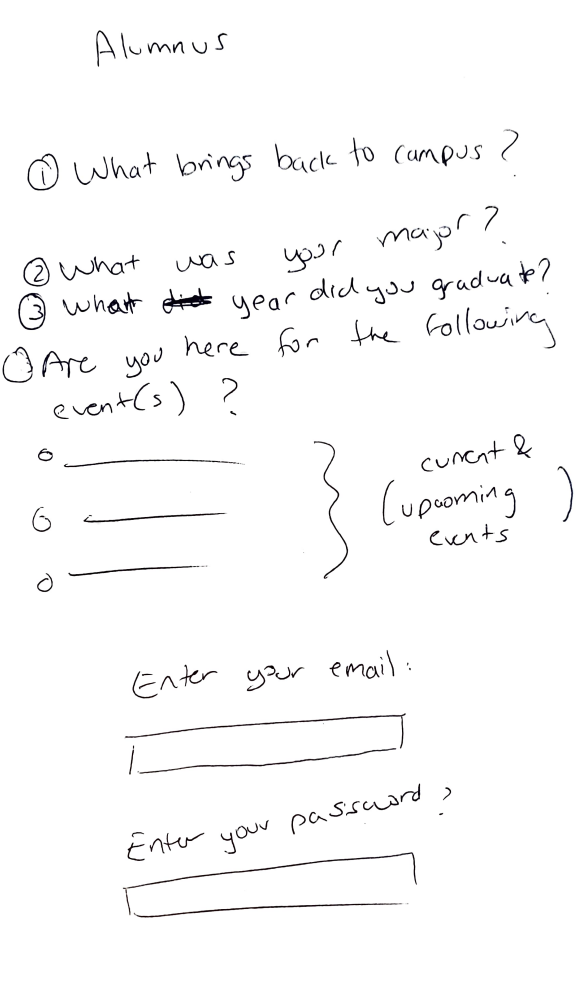 Alumnus
① What brings back to campus?
② What was your major?
③ What did year did you graduate?
Are you here for the following
event(s) ?
current &
(upcoming)
events
Enter your email:
Enter your password?